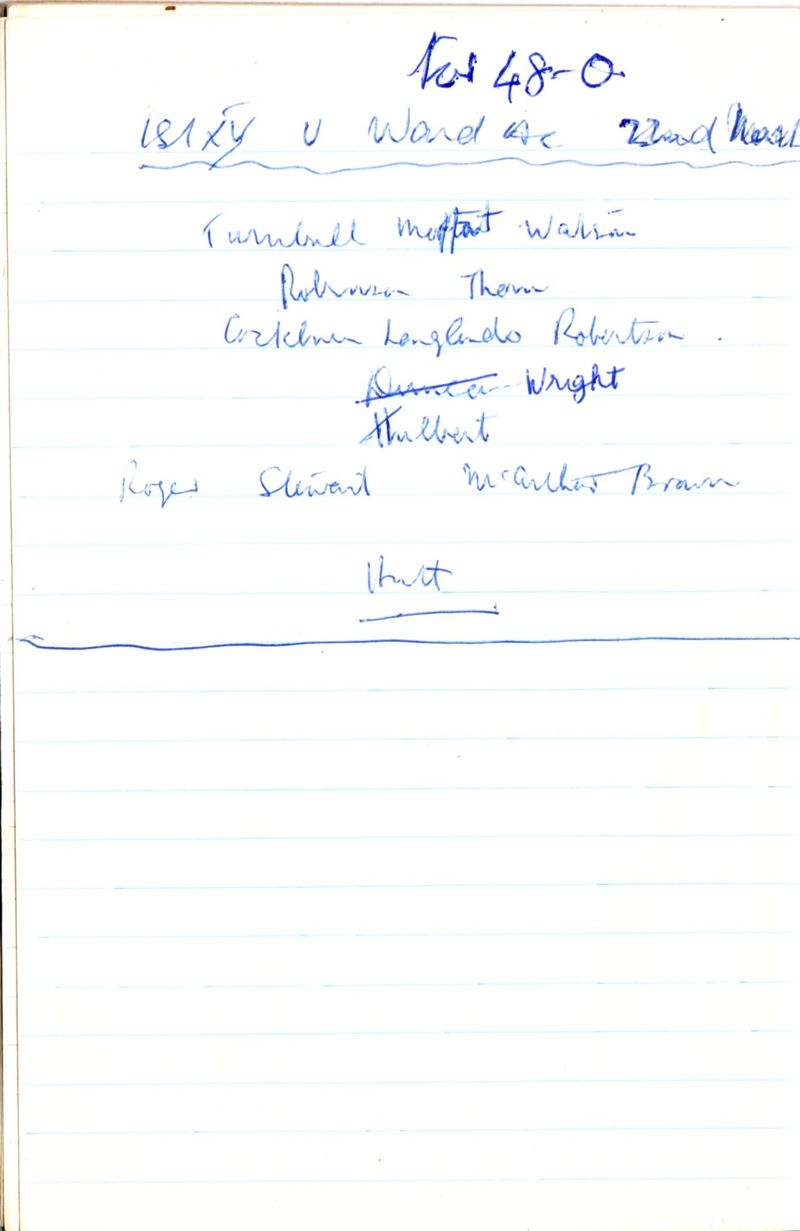 For 48-0
1st XV v Ward Ac 22nd March
Turnbull Moffat Watson
Robinson Thom
Cockburn Langlands Robertson.
Duncan Wright
Hulbert
Roger Stewart McArthur Brown